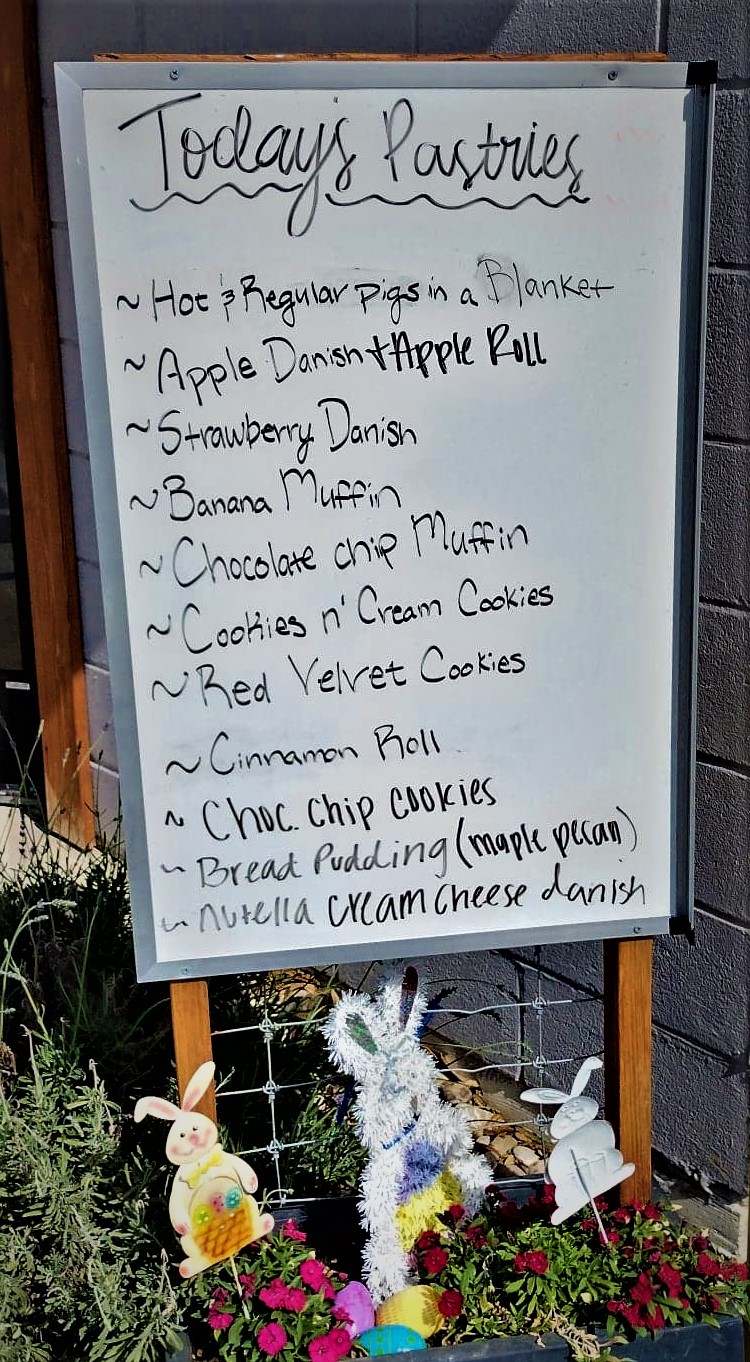 Today's Pastries
~ Hot & Regular Pigs in a Blanket
~ Apple Danish + Apple Roll
~ Strawberry Danish
~ Banana Muffin
~ Chocolate chip Muffin
~ Cookies n' Cream Cookies
~ Red Velvet Cookies
~ Cinnamon Roll
~ Choc. Chip cookies
~ Bread Pudding (maple pecan)
~ nutella cream cheese danish